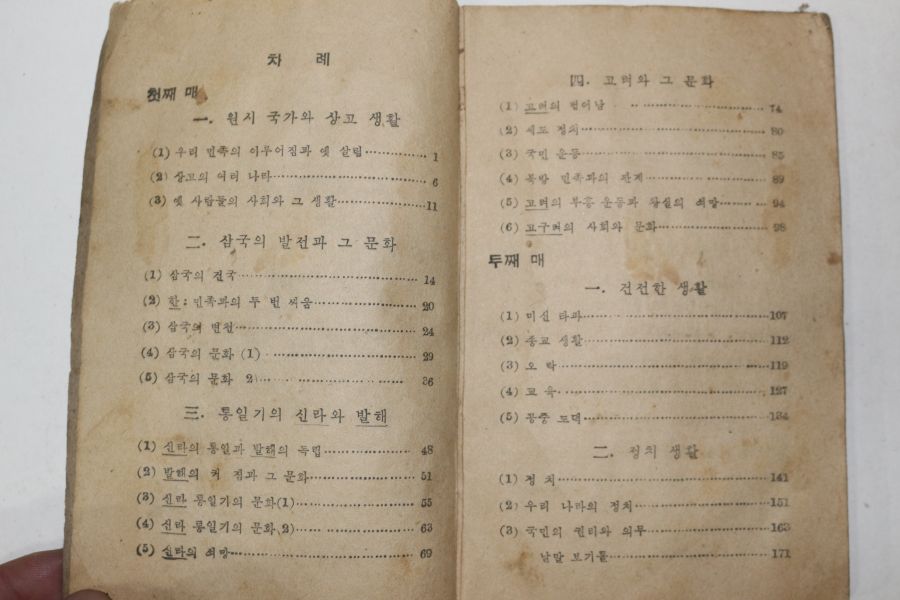 차 례
첫째 매
一. 원시 국가와 상고 생활
(1) 우리 민족의 이루어짐과 옛 살림 1
(2) 상고의 여러 나라 6
(3) 옛 사람들의 사회와 그 생활 11
二. 삼국의 발전과 그 문화
(1) 삼국의 건국 14
(2) 한: 민족과의 두 번 싸움 20
(3) 삼국의 변천 24
(4) 삼국의 문화 (1) 29
(5) 삼국의 문화 2) 36
三. 통일기의 신라와 발해
(1) 신라의 통일과 발해의 독립 48
(2) 발해의 커 짐과 그 문화 51
(3) 신라 통일기의 문화(1) 55
(4) 신라 통일기의 문화 2) 63
(5) 신라의 쇠망 69
四. 고려와 그 문화
(1) 고려의 일어남 74
(2) 세도 정치 80
(3) 국민 운동 85
(4) 북방 민족과의 관계 89
(5) 고려의 부흥 운동과 왕실의 쇠망 94
(6) 고구려의 사회와 문화 98
두째 매
一. 건전한 생활
(1) 미신 타파 107
(2) 종교 생활 112
(3) 오 락 119
(4) 교 육 127
(5) 공중 도덕 134
二. 정치 생활
(1) 정 치 141
(2) 우리 나라의 정치 151
(3) 국민의 권리와 의무 163
낱말 보기틀 171